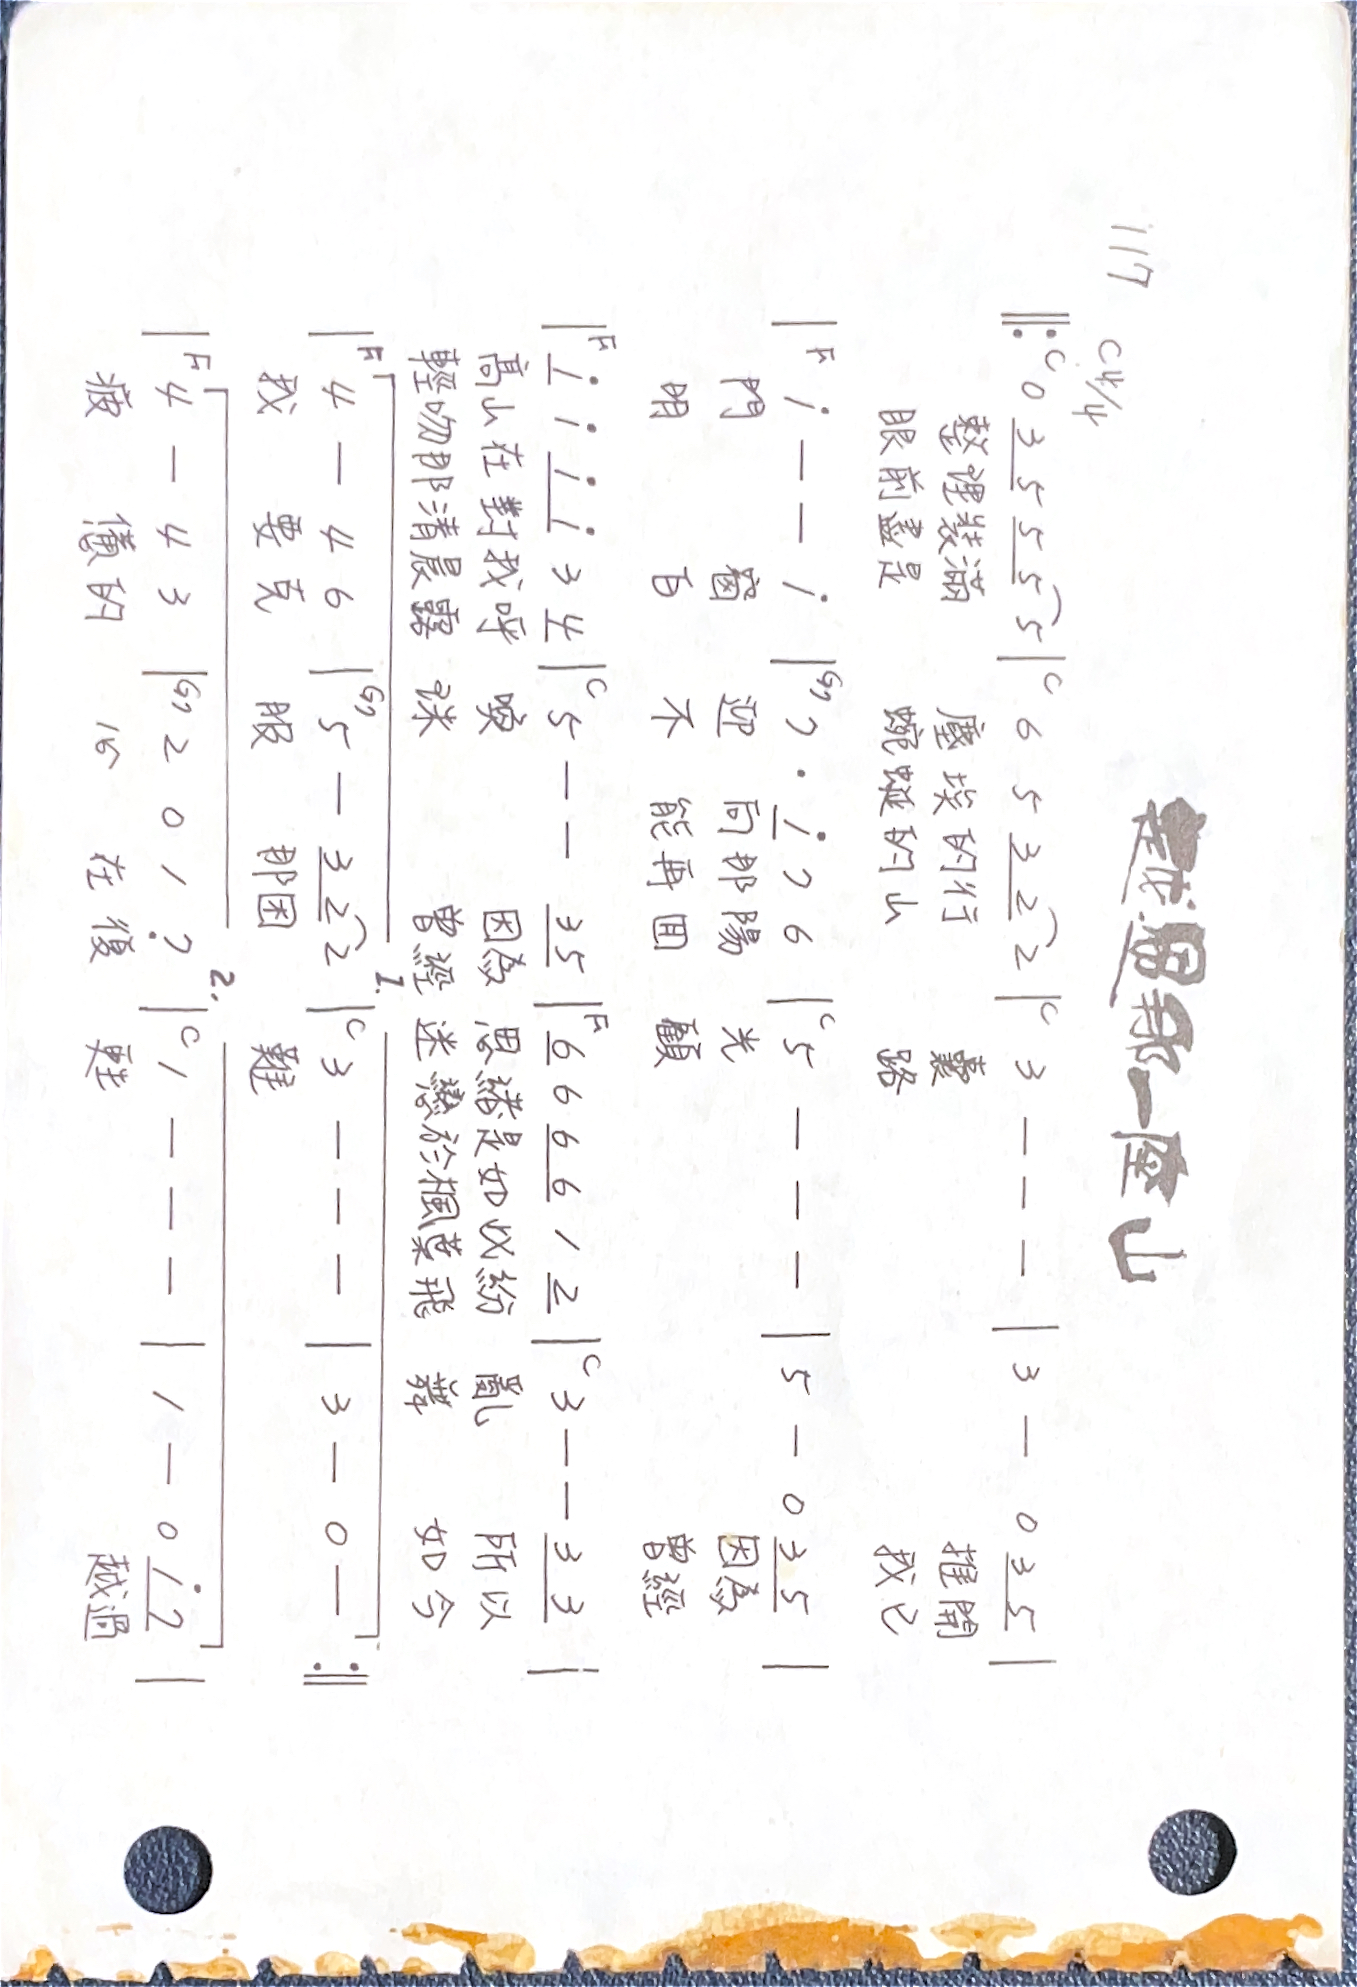 越過那一座山
117
C4/4
‖: C 0 3 5 5 5 5 | C 6 5 3 2 2 | C 3 — — — | 3 — 0 3 5 |
整理裝滿 塵埃的行 囊 推開
眼前盡是 蜿蜒的山 路 我已
| F i — — i | G7 7 · i 7 6 | C 5 — — — | 5 — 0 3 5 |
門 窗 迎 向那陽 光 因為
明 白 不 能再囬 顧 曾經
| F i i i i 3 4 | C 5 — — 3 5 | F 6 6 6 6 1 2 | C 3 — — 3 3 |
高山在對我呼 喚 因為 思緒是如此紛 亂 所以
輕吻那清晨露 珠 曾經 迷戀於楓葉飛 舞 如今
1.
| F 4 — 4 6 | G7 5 — 3 2 2 | C 3 — — — | 3 — 0 — :‖
我 要克 服 那困 難
2.
| F 4 — 4 3 | G7 2 0 1 7̣ | C 1 — — — | 1 — 0 i 7 |
疲 憊的 心 在復 甦 越過